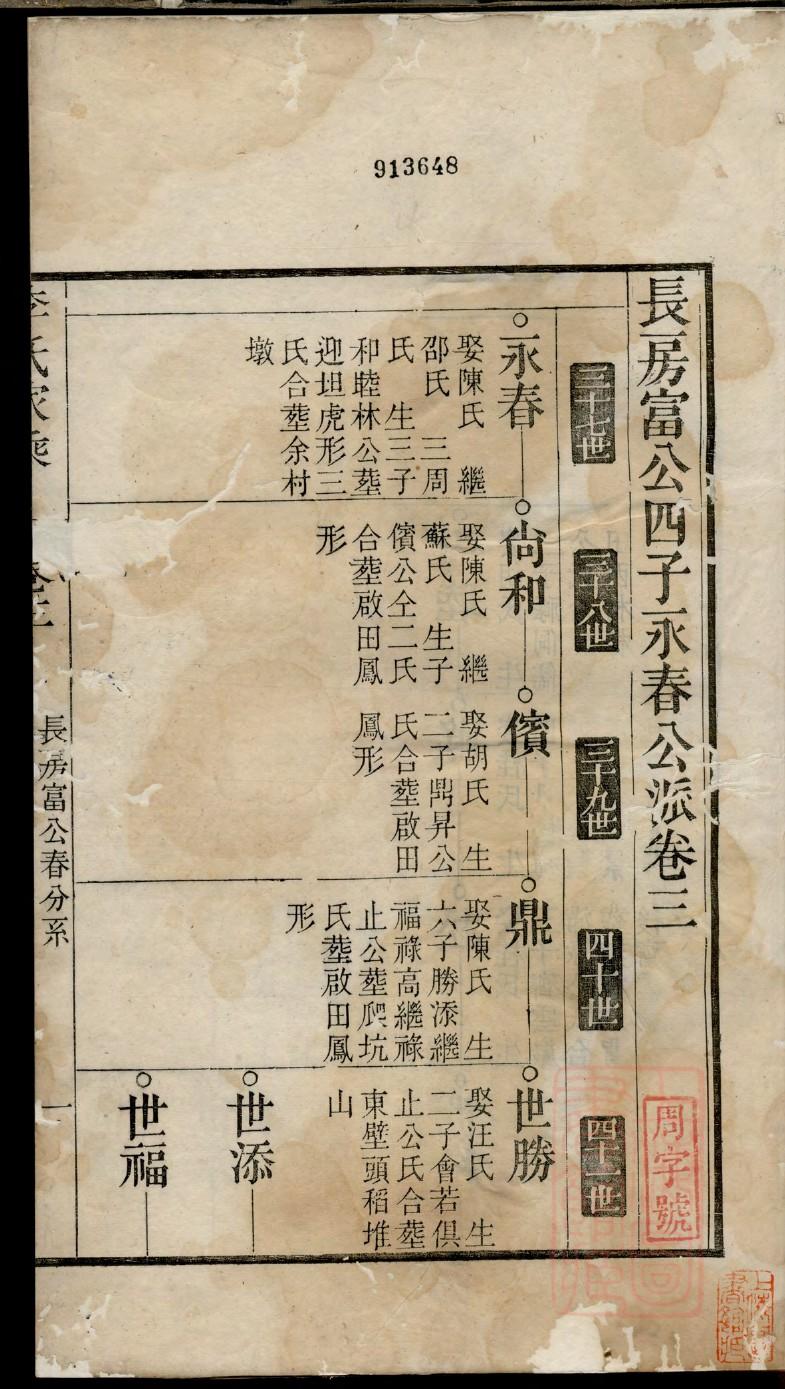 913648
長房富公四子永春公派卷三
周字號
三十七世
三十八世
三十九世
四十世
四十一世
永春
娶陳氏　繼
邵氏　三周
氏　生三子
和睦林公塟
迎坦虎形三
氏合塟余村
墩
尙和
娶陳氏　繼
蘇氏　生子
儐公仝二氏
合塟啟田鳳
形
儐
娶胡氏　生
二子鼎昇公
氏合塟啟田
鳳形
鼎
娶陳氏　生
六子勝添繼
福祿高繼祿
止公塟爬坑
氏塟啟田鳳
形
世勝
娶汪氏　生
二子會若俱
止公氏合塟
東壁頭稻堆
山
世添
世福
李氏家乘
卷三
長房富公春分系
一